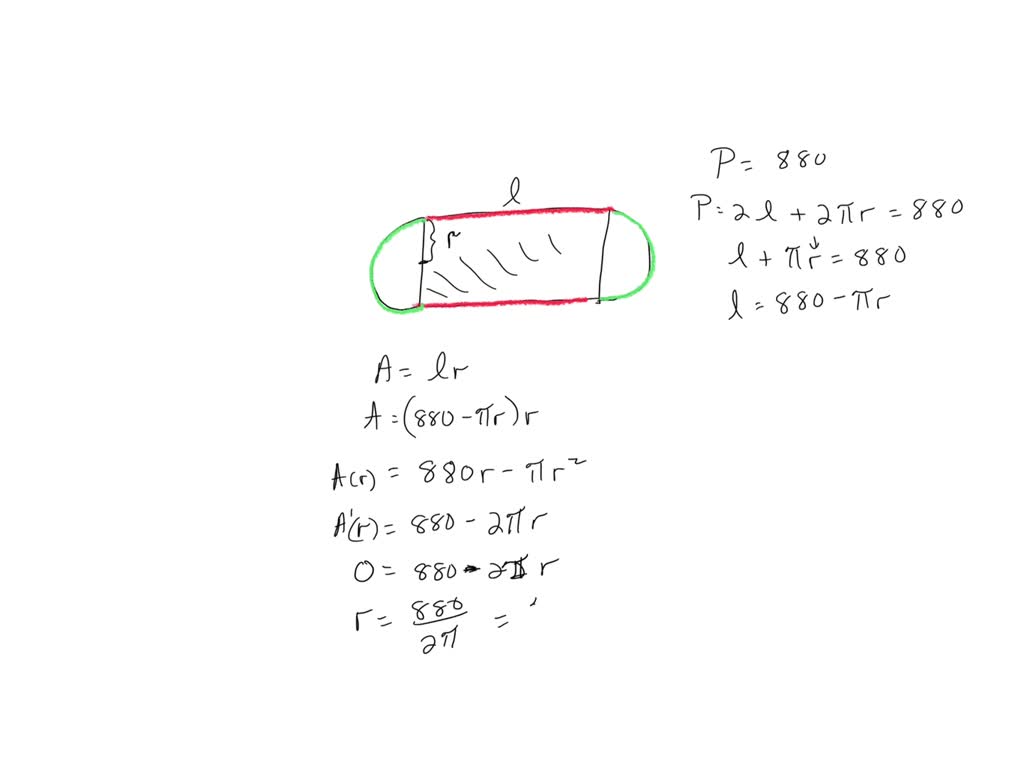 P = 880
l
P = 2l + 2πr = 880
r
l + πr = 880
l = 880 - πr
A = lr
A = (880 - πr)r
A(r) = 880r - πr²
A'(r) = 880 - 2πr
0 = 880 - 2π r
r = 880/2π =